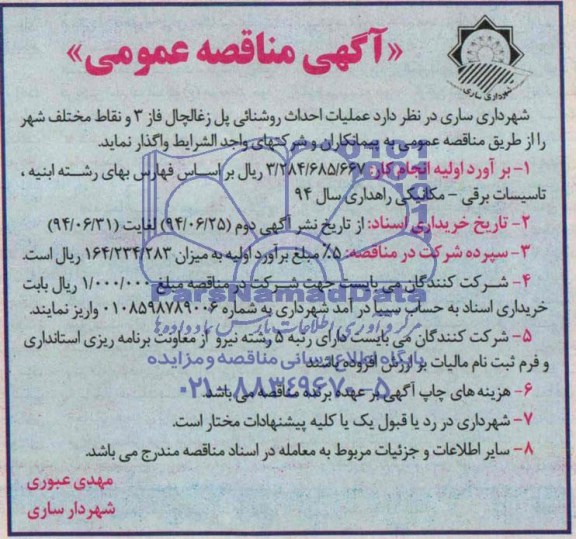 «آگهی مناقصه عمومی»
شهرداری ساری
شهرداری ساری در نظر دارد عملیات احداث روشنائی پل زغالچال فاز ۳ و نقاط مختلف شهر
را از طریق مناقصه عمومی به پیمانکاران و شرکتهای واجد الشرایط واگذار نماید.
۱- بر آورد اولیه انجام کار: ۳/۲۸۴/۶۸۵/۶۶۷ ریال بر اساس فهارس بهای رشته ابنیه ،
تاسیسات برقی - مکانیکی راهداری سال ۹۴
۲- تاریخ خریداری اسناد: از تاریخ نشر آگهی دوم (۹۴/۰۶/۲۵) لغایت (۹۴/۰۶/۳۱)
۳- سپرده شرکت در مناقصه: ۵٪ مبلغ برآورد اولیه به میزان ۱۶۴/۲۳۴/۲۸۳ ریال است.
۴- شرکت کنندگان می بایست جهت شرکت در مناقصه مبلغ ۱/۰۰۰/۰۰۰ ریال بابت
ParsNamadData
خریداری اسناد به حساب سیبا در آمد شهرداری به شماره ۰۱۰۸۵۹۸۷۸۹۰۰۶ واریز نمایند.
مرکز فرآوری اطلاعات پارس نماد داده ها
۵- شرکت کنندگان می بایست دارای رتبه ۵ رشته نیرو از معاونت برنامه ریزی استانداری
پایگاه اطلاع رسانی مناقصه و مزایده
و فرم ثبت نام مالیات بر ارزش افزوده باشند
۰۲۱-۸۸۳۴۹۶۷۰-۵
۶- هزینه های چاپ آگهی بر عهده برنده مناقصه می باشد.
۷- شهرداری در رد یا قبول یک یا کلیه پیشنهادات مختار است.
۸- سایر اطلاعات و جزئیات مربوط به معامله در اسناد مناقصه مندرج می باشد.
مهدی عبوری
شهردار ساری